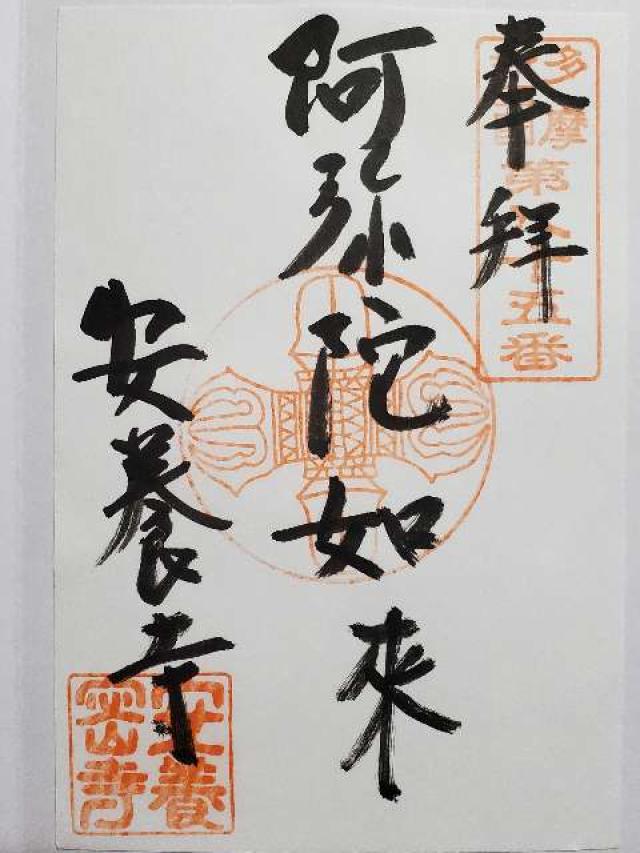 奉拝
多摩
第十五番
阿弥陀如来
安養寺
安養
密寺